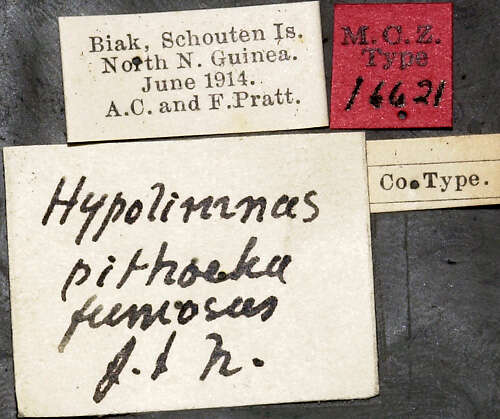 Biak, Schouten Is.
North N. Guinea.
June 1914.
A.C. and F.Pratt.
M.C.Z.
Type
16621
Co.Type.
Hypolimnas
pithoeka
fumosus
J. & N.